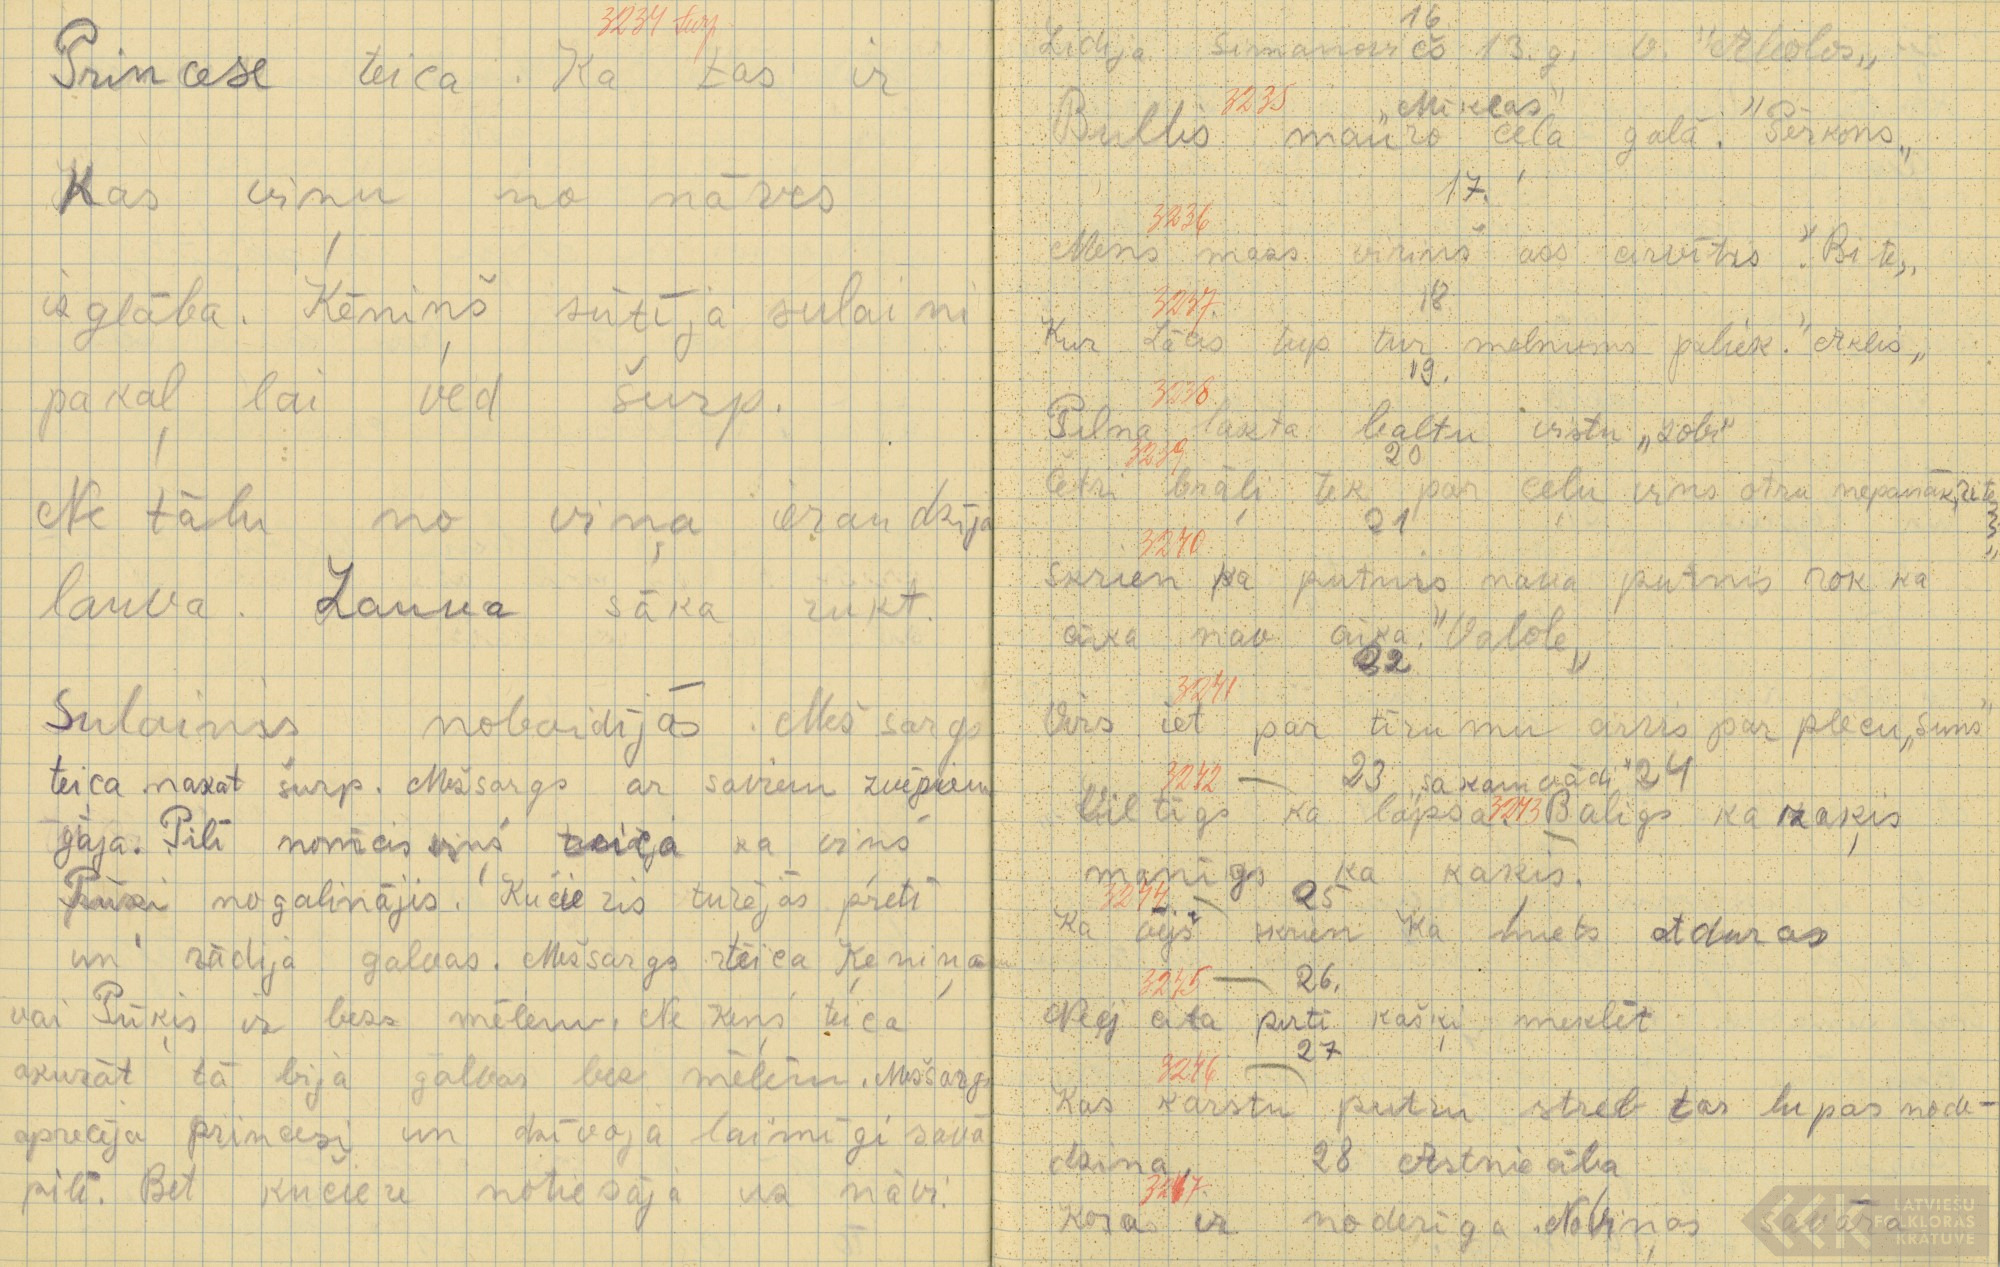 3234 turp
Princese teica. Ka tas ir
Kas viņu no nāves
izglāba. Ķēniņš sūtīja sulaini
pakaļ lai ved šurp.
Ne tālu no viņa ieraudzīja
lauva. Lauva sāka rūkt.
Sulainis nobaidījās. Mešsargs
teica nakat šurp. Mešsargs ar saviem zvēriem
gāja. Pilī nonācis viņš teica ka viņš
Pūķi nogalinājis. Kučieris turējās pretī
un rādija galvas. Mešsargs teica Ķēniņam
vai Pūķis ir bess mēlem. Ne teica
akurāt tā bija galvas bez mēlēm. Mešsargs
aprecēja princesi un dzīvoja laimīgi savā
pilī. Bet kučiere notiesāja uz nāvi.
16
Lidija Simanovičs 13.g. V. "Abolos„
3235 "Miklas"
Bullis mauro ceļa galā. "Pērkons„
17.
3236
Mens mass viriņš ass cirvītis "Bite„
3237. 18
Kur Lācis tup tur melnums paliek. "Aklis„
19.
3238
Pilna lakta baltu vistu „zobi"
3239 20
Četri brāļi tek par ceļu viens otru nepanāk, riteņi„
21
3240
Skrien ka putnis nava putnis rok ka
cūka nav cūka. "Vabole„
22
3241
Virs iet par tīrumu arklis par plecu „suns"
3242 — 23 sakamvādi 24
Viltīgs ka lapsa. 3243 Bailīgs ka zaķis
manīgs ka kaķis.
3244 — 25
Ka vējš skrien ka miets atduras
3245 — 26.
Neej cita pirtī kašķi meklēt
27
3246 —
Kas karstu putru streb tas lupas node-
dzina. 28 Astniecība
3247
Kosas ir noderīga. Novinas
LATVIEŠU
FOLKLORAS
KRĀTUVE